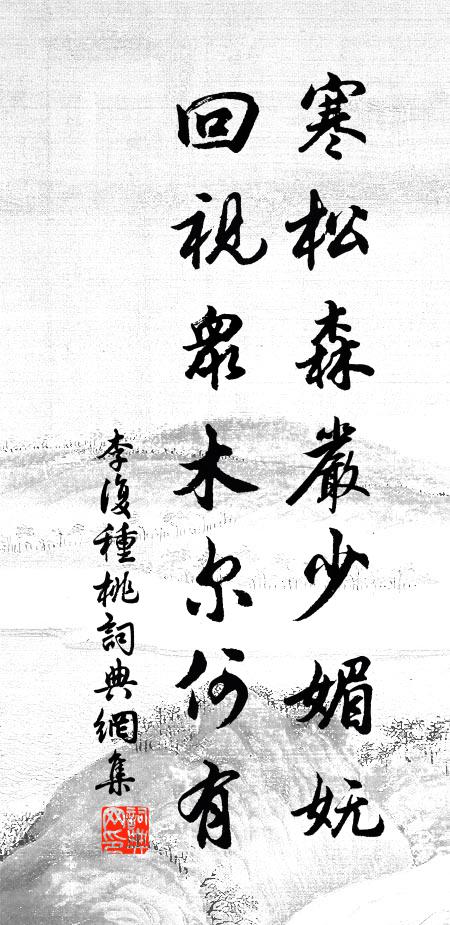 寒松森嚴少媚妩
回視眾木尔何有
李復種桃詞典網集